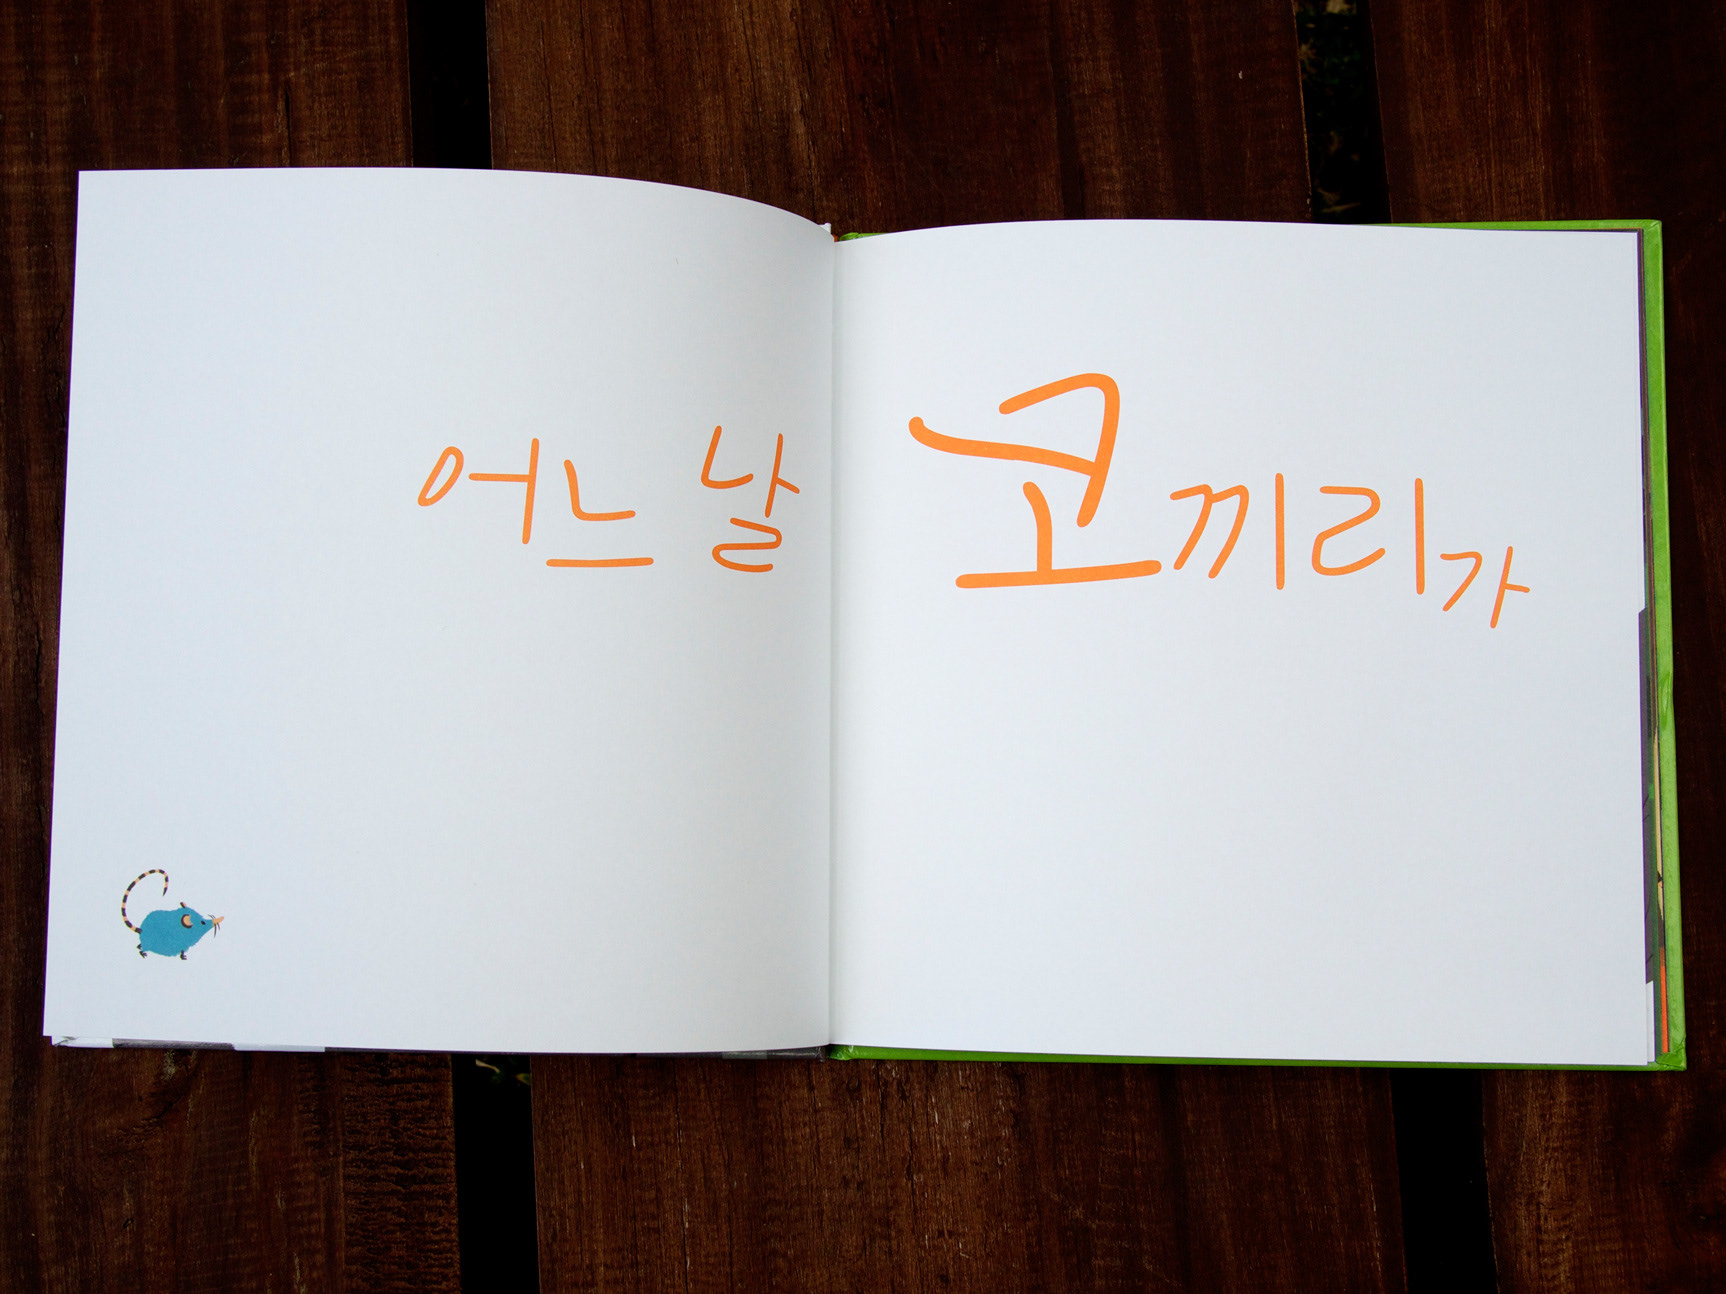 어느 날 코끼리가